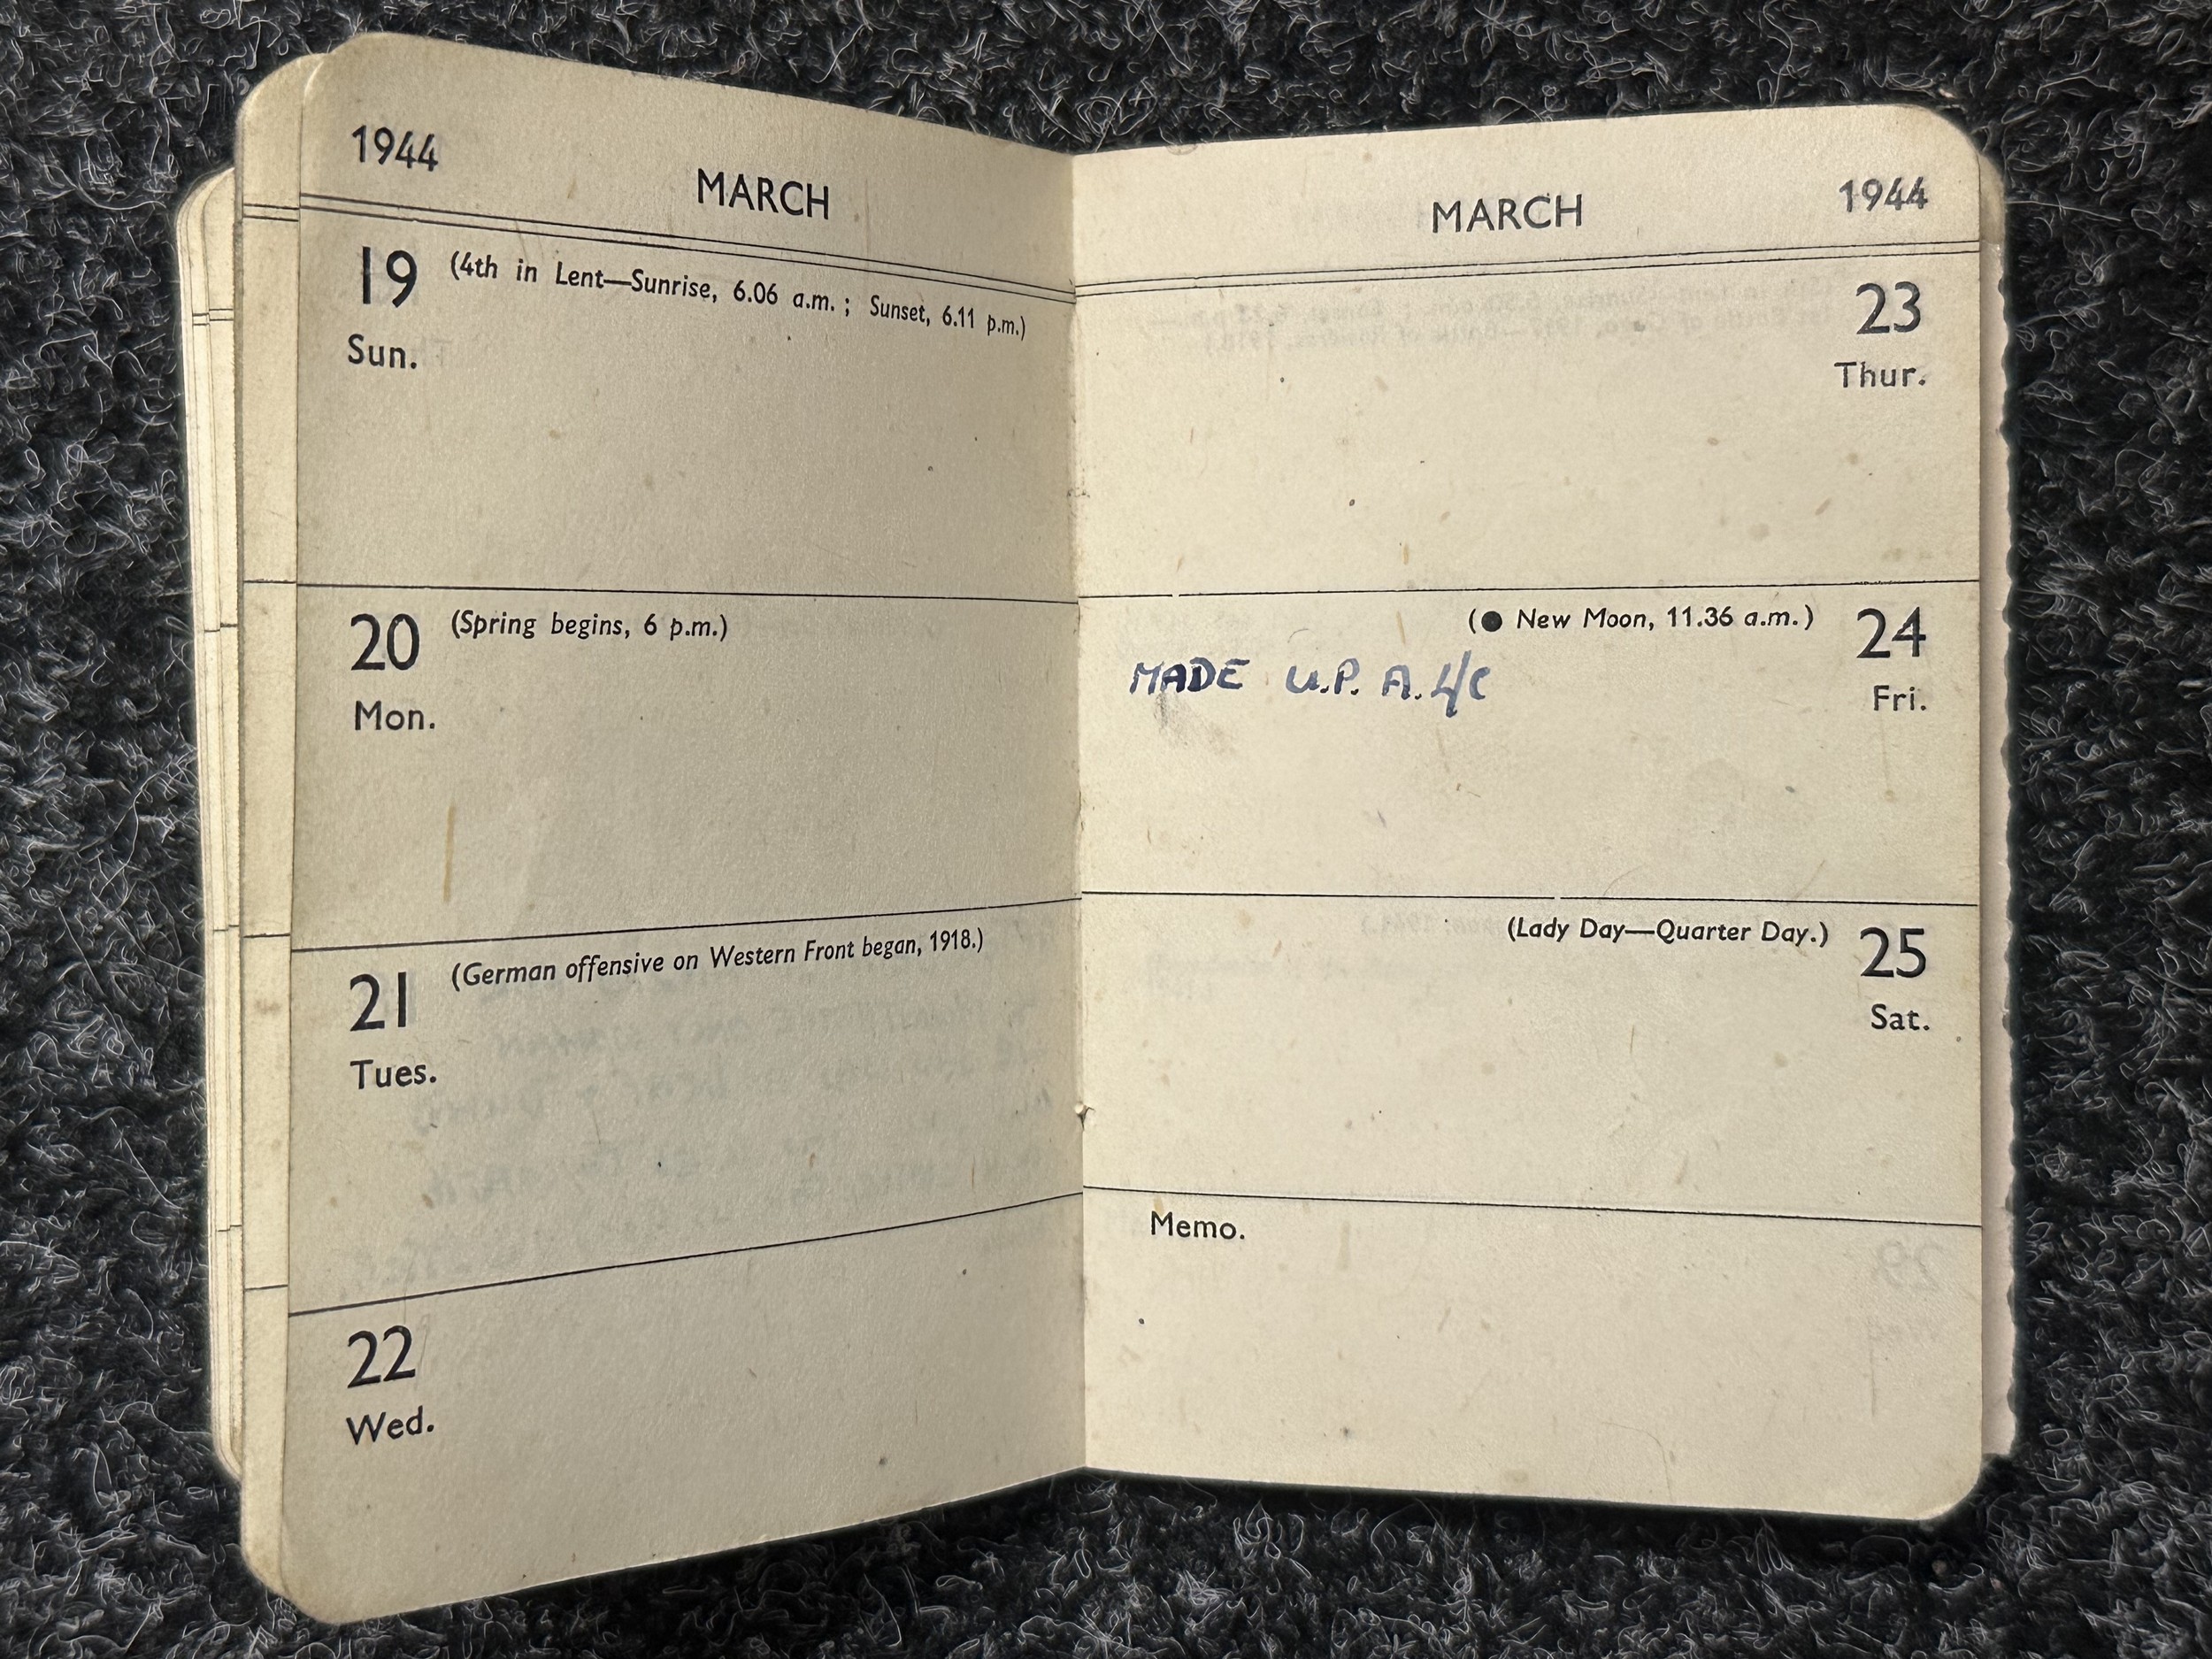 1944
MARCH
19 (4th in Lent—Sunrise, 6.06 a.m. ; Sunset, 6.11 p.m.)
Sun.
20 (Spring begins, 6 p.m.)
Mon.
21 (German offensive on Western Front began, 1918.)
Tues.
22
Wed.
MARCH 1944
23
Thur.
(● New Moon, 11.36 a.m.) 24
MADE U.P. A. L/C
Fri.
(Lady Day—Quarter Day.) 25
Sat.
Memo.